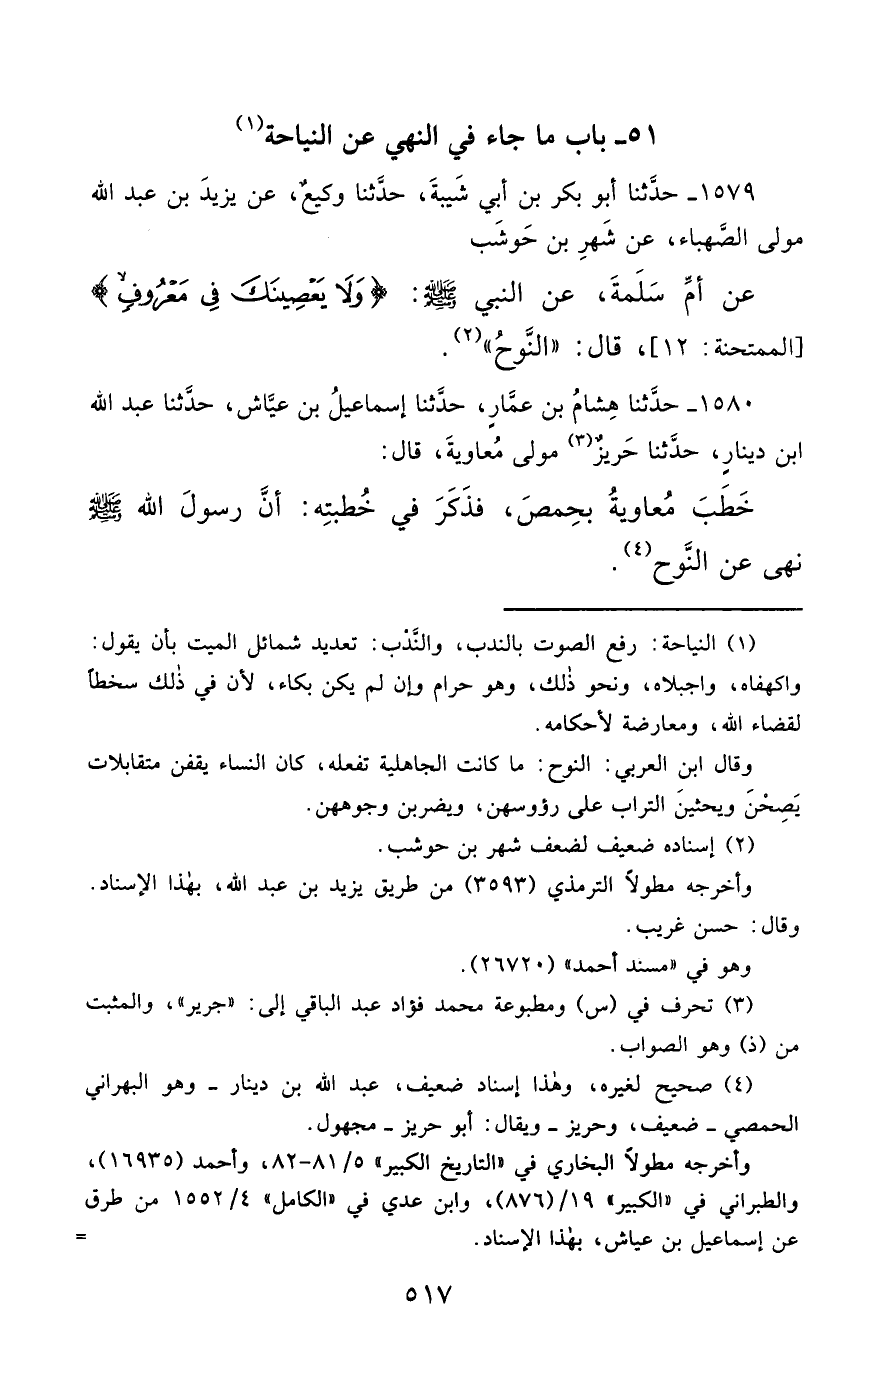 ٥١ـ باب ما جاء في النهي عن النياحة(١)
١٥٧٩ـ حدَّثنا أبو بكر بن أبي شَيبةَ، حدَّثنا وكيعٌ، عن يزيدَ بن عبد الله
مولى الصَّهباء، عن شَهرِ بن حَوشَب
عن أمِّ سَلَمةَ، عن النبي ﷺ: ﴿وَلَا يَعْصِينَكَ فِي مَعْرُوفٍ﴾
[الممتحنة: ١٢]، قال: «النَّوحُ»(٢).
١٥٨٠ـ حدَّثنا هِشامُ بن عمَّارٍ، حدَّثنا إسماعيلُ بن عيَّاش، حدَّثنا عبد الله
ابن دينارٍ، حدَّثنا حَريزٌ(٣) مولى مُعاويةَ، قال:
خَطَبَ مُعاويةُ بحِمصَ، فذَكَرَ في خُطبتِه: أنَّ رسولَ الله ﷺ
نهى عن النَّوح(٤).
(١) النياحة: رفع الصوت بالندب، والنَّدْب: تعديد شمائل الميت بأن يقول:
واكهفاه، واجبلاه، ونحو ذٰلك، وهو حرام وإن لم يكن بكاء، لأن في ذٰلك سخطاً
لقضاء الله، ومعارضة لأحكامه.
وقال ابن العربي: النوح: ما كانت الجاهلية تفعله، كان النساء يقفن متقابلات
يَصِحْنَ ويحثينَ التراب على رؤوسهن، ويضربن وجوههن.
(٢) إسناده ضعيف لضعف شهر بن حوشب.
وأخرجه مطولاً الترمذي (٣٥٩٣) من طريق يزيد بن عبد الله، بهٰذا الإسناد.
وقال: حسن غريب.
وهو في «مسند أحمد» (٢٦٧٢٠).
(٣) تحرف في (س) ومطبوعة محمد فؤاد عبد الباقي إلى: «جرير»، والمثبت
من (ذ) وهو الصواب.
(٤) صحيح لغيره، وهٰذا إسناد ضعيف، عبد الله بن دينار ـ وهو البهراني
الحمصي ـ ضعيف، وحريز ـ ويقال: أبو حريز ـ مجهول.
وأخرجه مطولاً البخاري في «التاريخ الكبير» ٥/ ٨١-٨٢، وأحمد (١٦٩٣٥)،
والطبراني في «الكبير» ١٩/ (٨٧٦)، وابن عدي في «الكامل» ٤/ ١٥٥٢ من طرق
عن إسماعيل بن عياش، بهٰذا الإسناد. =
٥١٧